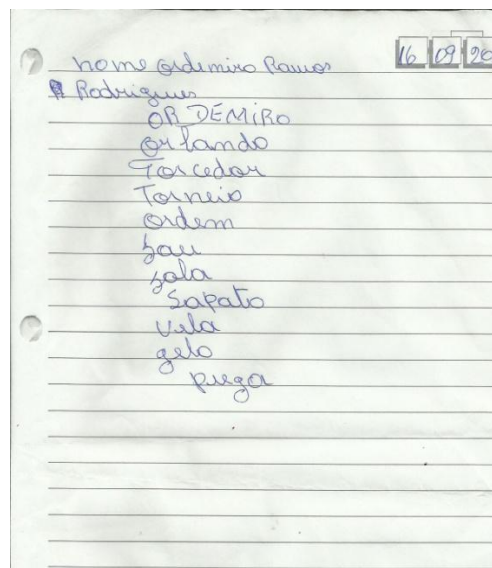 16 09 20
nome ordemiro Ramos
Rodrigues
ORDEMiRO
orlando
Torcedor
Torneio
ordem
sala
Sapato
vela
gelo
prego